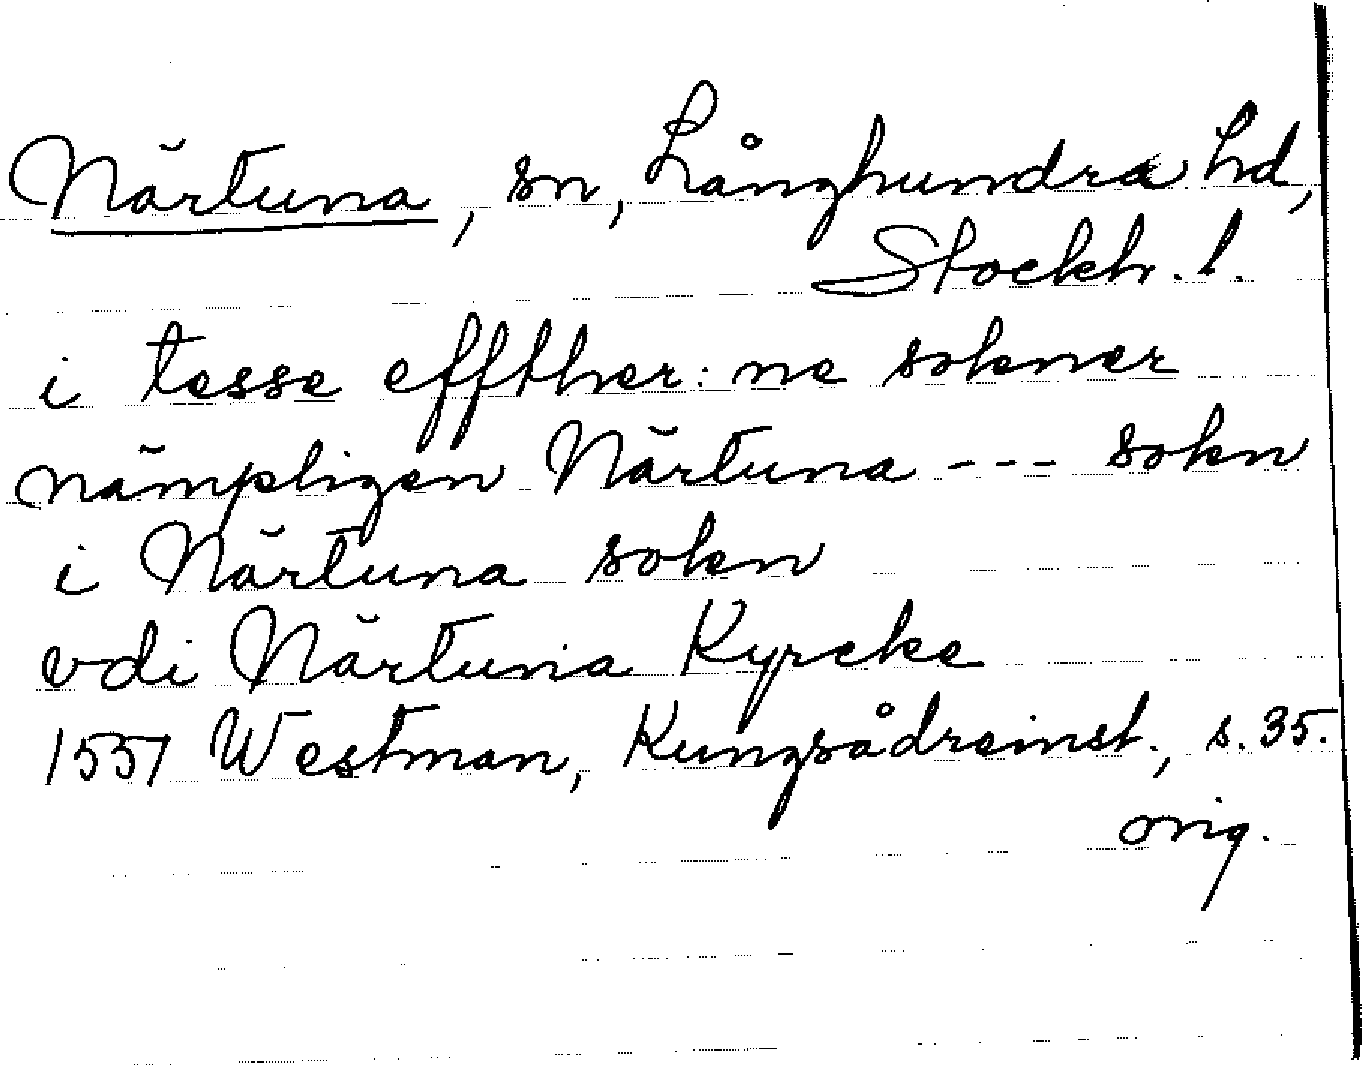 Närtuna, sn, Långhundra hd,
Stockh. l.
i tesse effther:ne sokner
nämpligen Närtuna --- sokn
i Närtuna sokn
vdi Närtuna Kyrcke
1551 Westman, Kungsådreinst., s. 35.
orig.